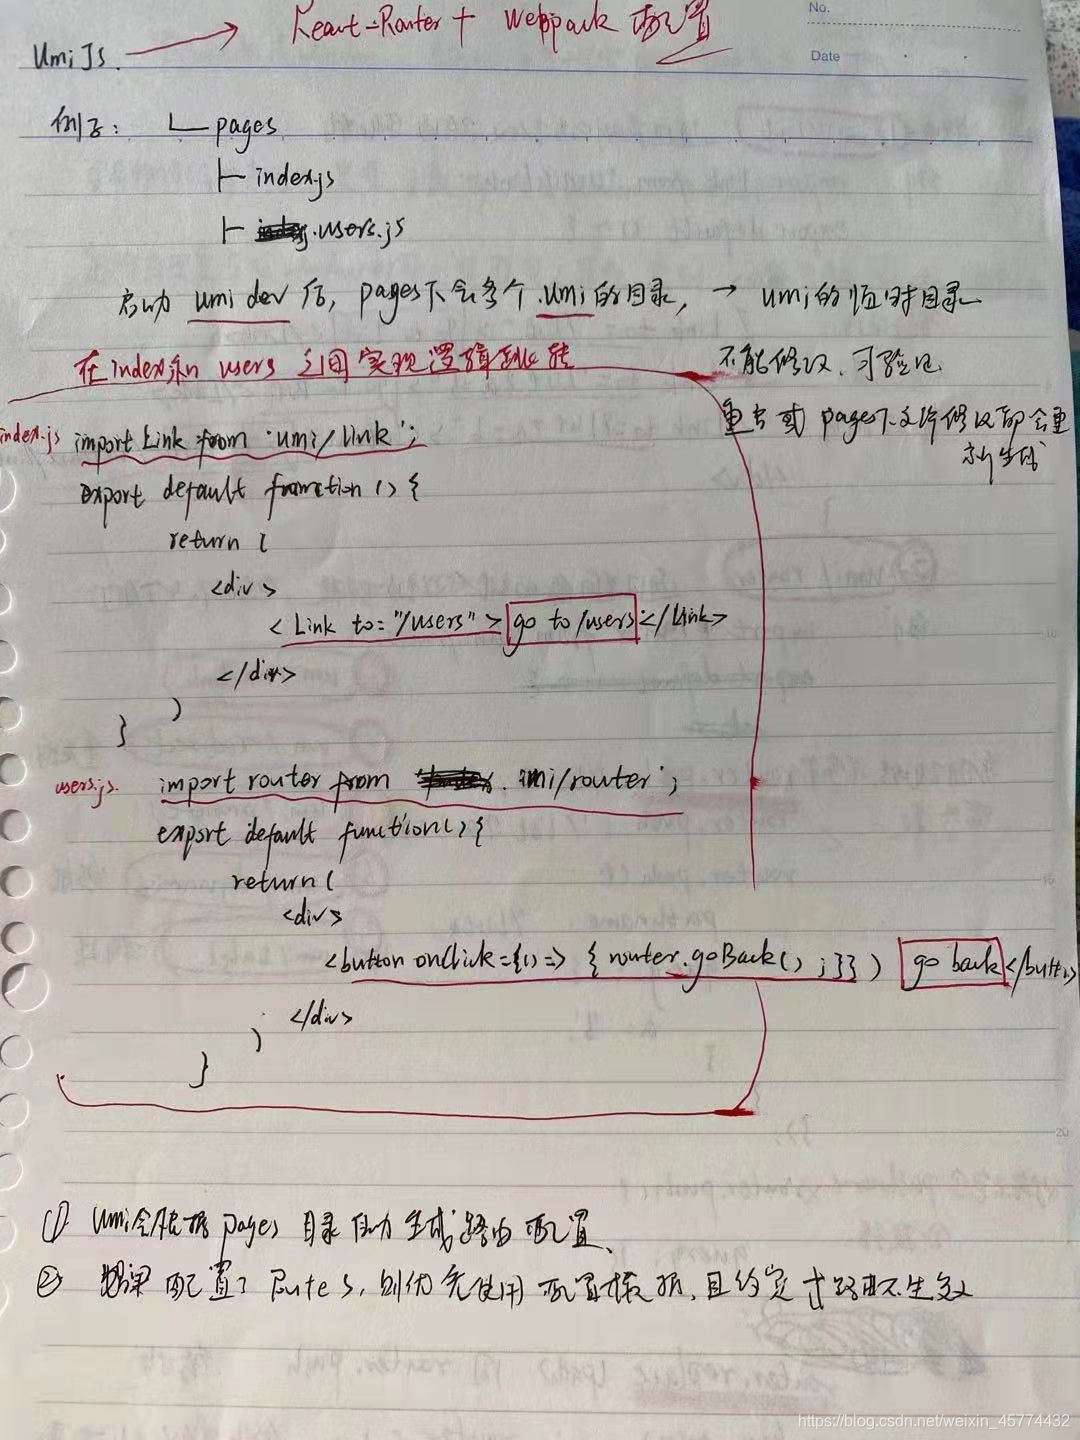 No.
React-Router + Webpack 配置
Umi JS
Date
例子: pages
index.js
.users.js
启动 umi dev 后, pages下会多个 .umi 的目录, → umi的临时目录
在index和 users 之间实现逻辑跳转
不能修改, 可验证
重启或 pages下文件修改都会重
新生成
index.js import Link from 'umi/link';
export default function () {
return (
<div>
<Link to="/users"> go to /users </Link>
</div>
)
}
users.js. import router from 'umi/router';
export default function() {
return (
<div>
<button onClick={() => { router.goBack() ; }} ) go back </button>
</div>
)
}
① Umi会根据 pages 目录自动生成路由配置、
② 如果配置了 Routes, 则优先使用 配置, 且约定式路由不生效
https://blog.csdn.net/weixin_45774432